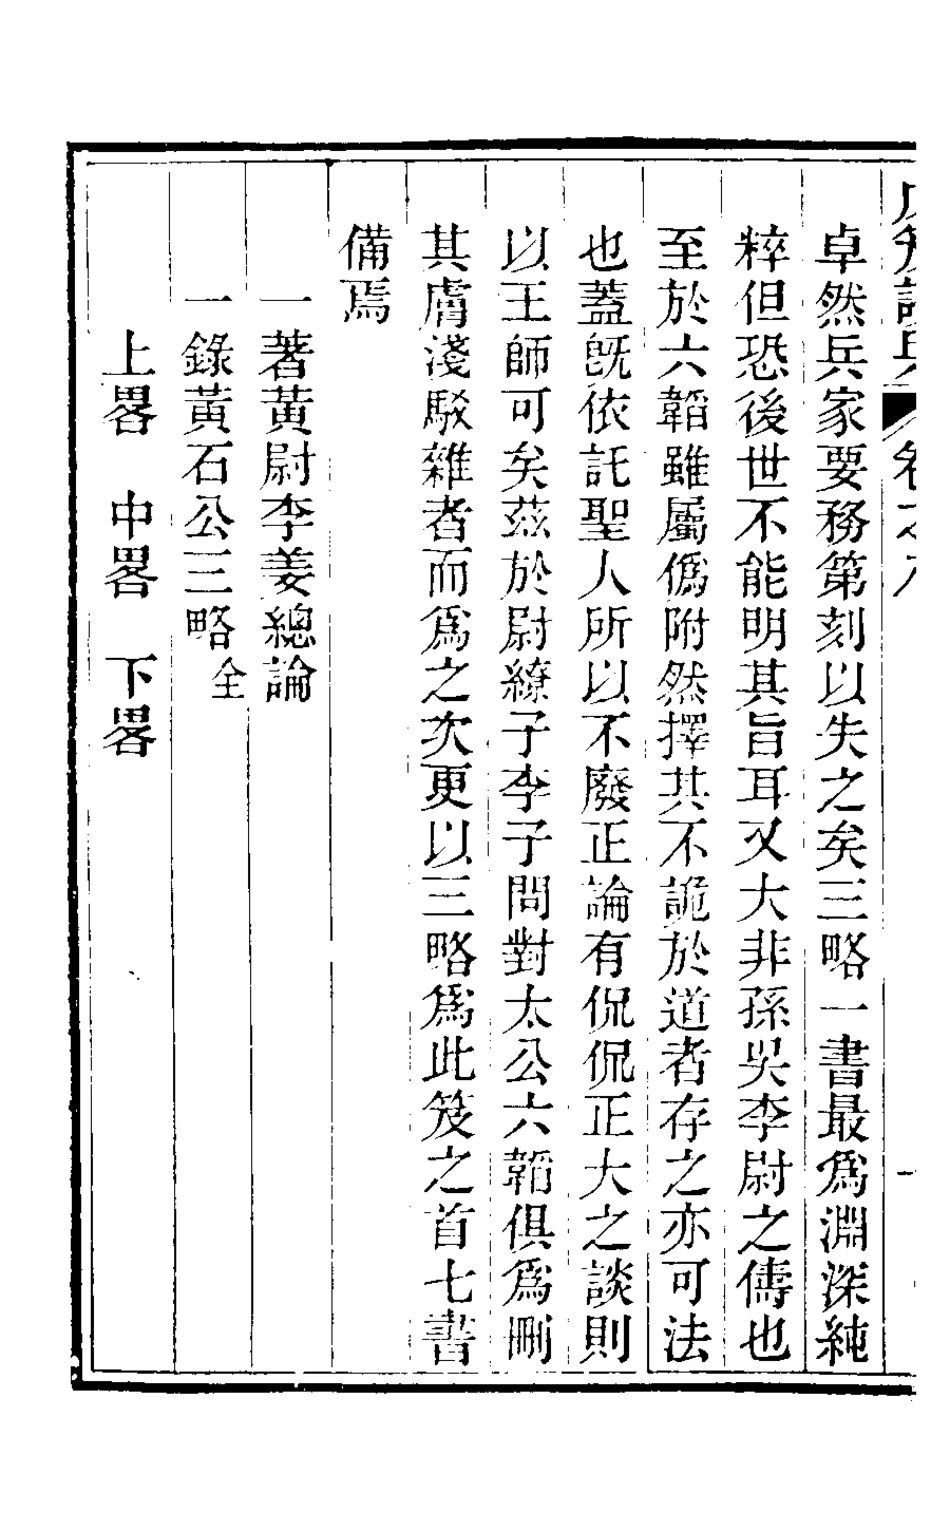 卓然兵家要務第刻以失之矣三略一書最為淵深純
粹但恐後世不能明其旨耳又大非孫吳李尉之儔也
至於六韜雖屬偽附然擇其不詭於道者存之亦可法
也蓋旣依託聖人所以不廢正論有侃侃正大之談則
以王師可矣茲於尉繚子李子問對太公六韜俱為刪
其膚淺駁雜者而為之次更以三略為此笈之首七書
備焉
一著黃尉李姜總論
一錄黃石公三略全
上畧 中畧 下畧